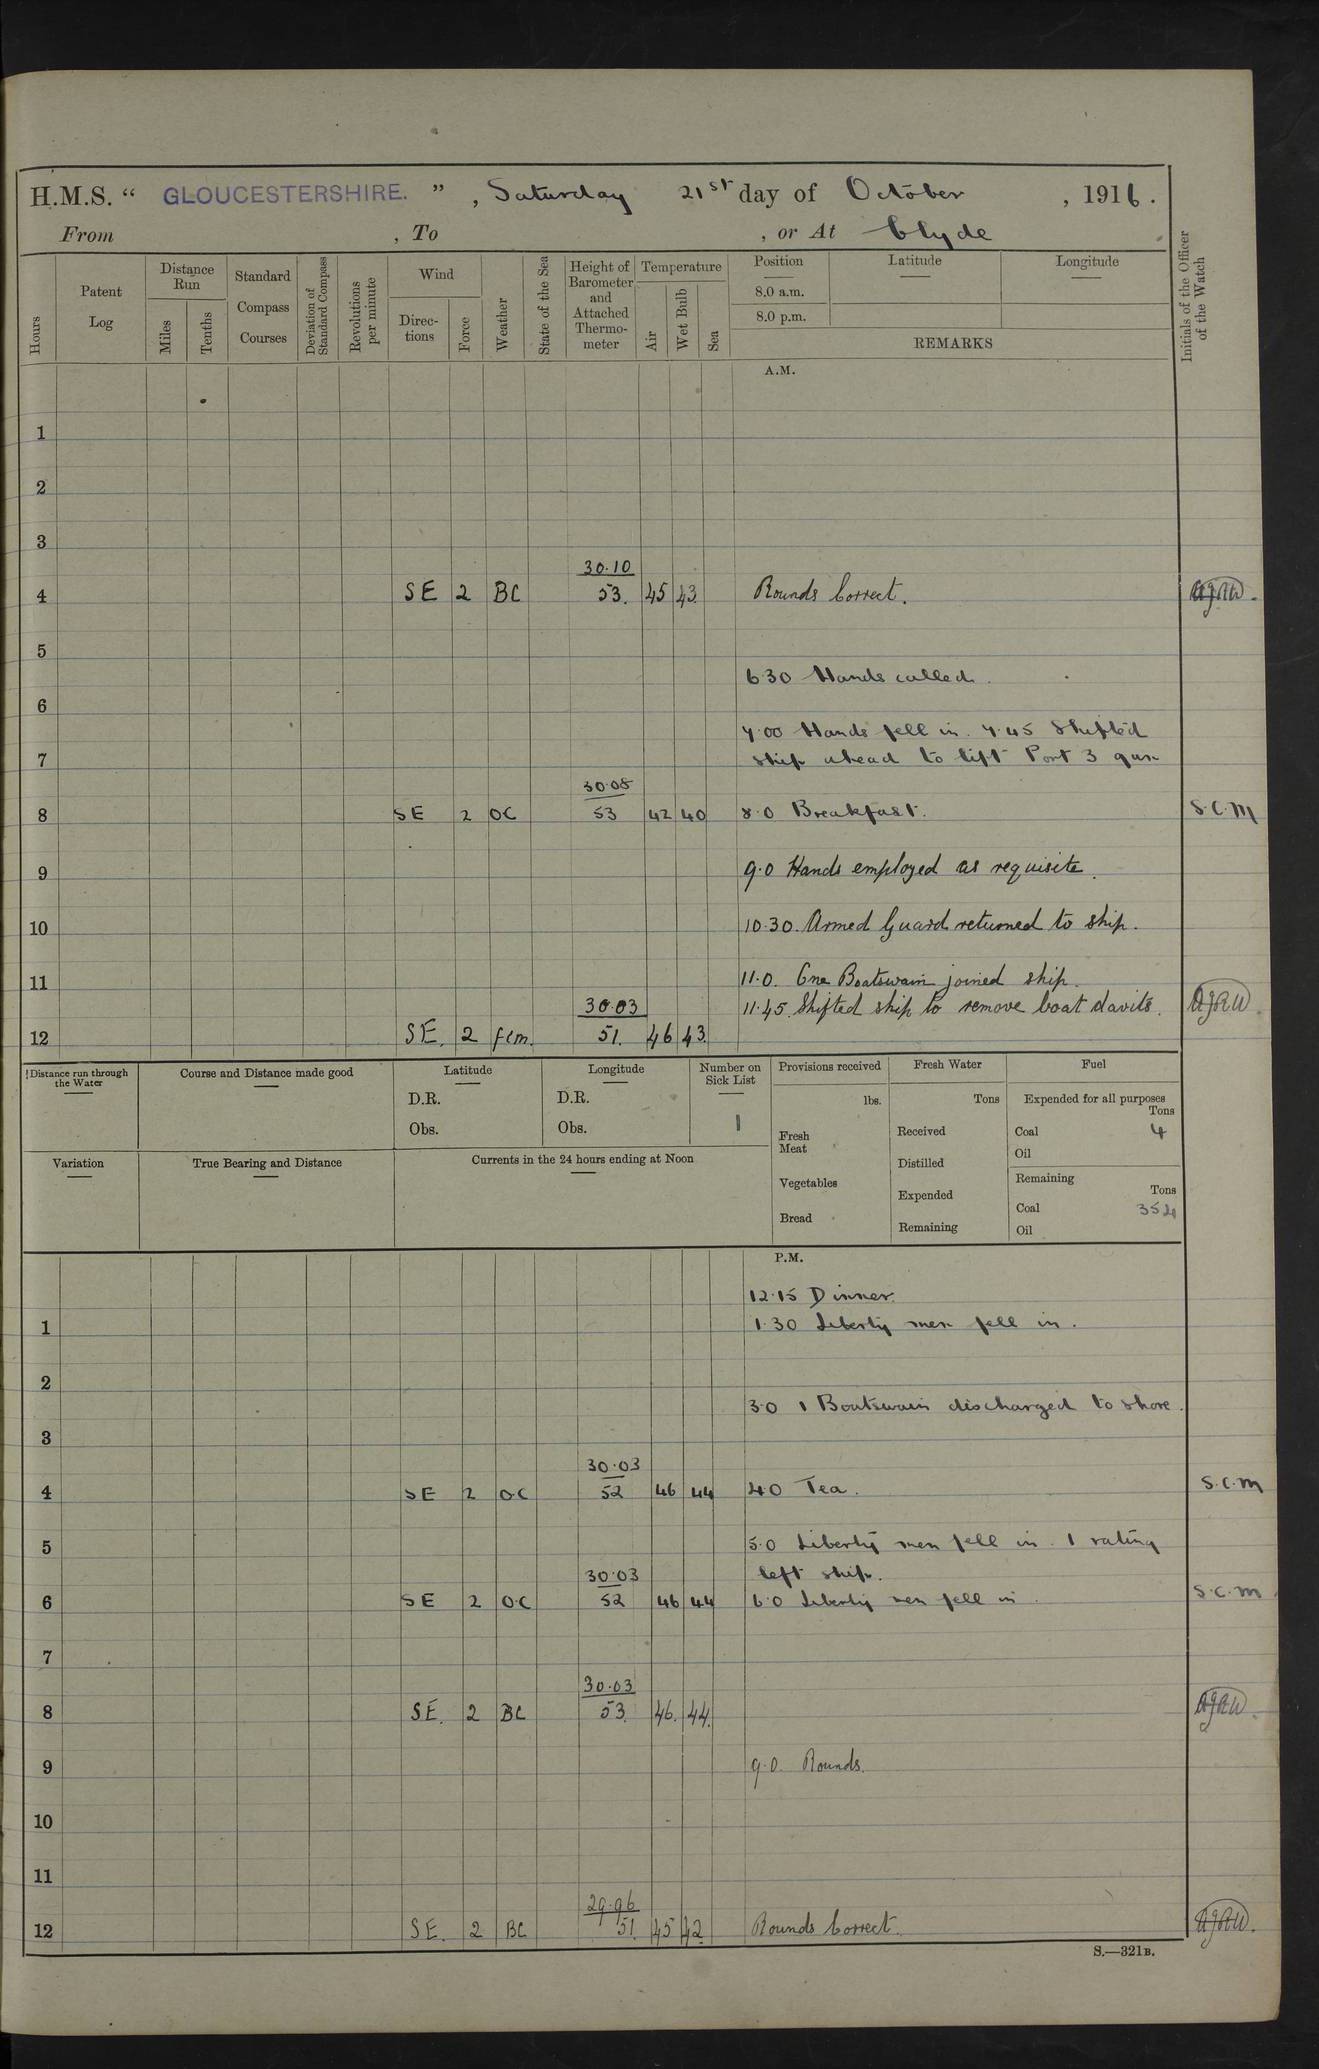 H.M.S. “ GLOUCESTERSHIRE. ” , Saturday 21st day of October , 1916.
From , To , or At Clyde
Hours
Patent Log
Distance Run
Miles
Tenths
Standard Compass Courses
Deviation of Standard Compass
Revolutions per minute
Wind
Directions
Force
Weather
State of the Sea
Height of Barometer and Attached Thermometer
Temperature
Air
Wet Bulb
Sea
Position
8.0 a.m.
8.0 p.m.
Latitude
Longitude
REMARKS
Initials of the Officer of the Watch
A.M.
1
2
3
30.10
4 SE 2 BC 53. 45 43. Rounds Correct.
5
6.30 Hands called.
6
7.00 Hands fell in. 7.45 Shifted
7 ship ahead to lift Port 3 gun
30.08
8 SE 2 OC 53 42 40 8.0 Breakfast. S.C.M
9 9.0 Hands employed as requisite.
10 10.30. Armed Guard returned to ship.
11 11.0. One Boatswain joined ship.
30.03 11.45. Shifted ship to remove boat davits.
12 SE. 2 fcm. 51. 46 43.
Distance run through the Water
Course and Distance made good
Latitude
D.R.
Obs.
Longitude
D.R.
Obs.
Number on Sick List
1
Provisions received
lbs.
Fresh Meat
Vegetables
Bread
Fresh Water
Tons
Received
Distilled
Expended
Remaining
Fuel
Expended for all purposes
Tons
Coal 4
Oil
Remaining
Tons
Coal 354
Oil
Variation
True Bearing and Distance
Currents in the 24 hours ending at Noon
P.M.
12.15 Dinner.
1 1.30 Liberty men fell in.
2
3.0 1 Boatswain discharged to shore.
3
30.03
4 SE 2 OC 52 46 44 4.0 Tea. S.C.M
5 5.0 Liberty men fell in. 1 rating
30.03 left ship.
6 SE 2 OC 52 46 44 6.0 Liberty men fell in. S.C.M
7
30.03
8 SE. 2 BC 53. 46. 44.
9 9.0. Rounds.
10
11
29.96
12 SE. 2 BC 51. 45 42. Rounds Correct.
S.—321B.